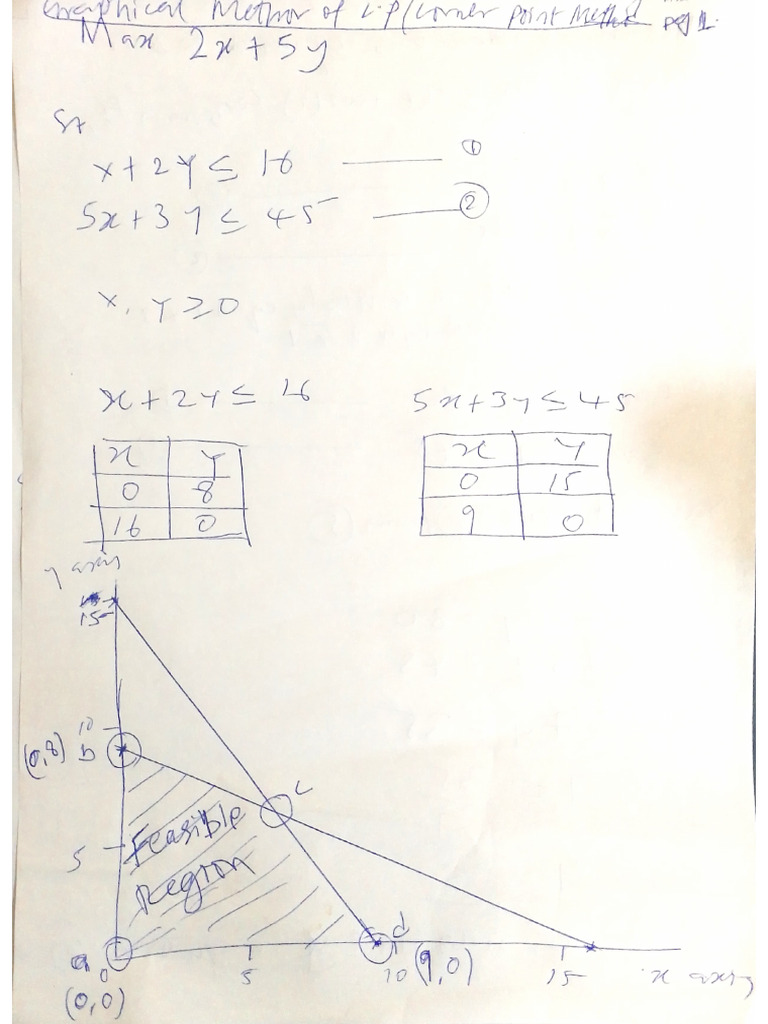 Graphical Method of L.P (Corner Point Method) pg 1.
Max 2x + 5y
St
x + 2y ≤ 16 ——— ①
5x + 3y ≤ 45 ——— ②
x, y ≥ 0
x + 2y ≤ 16 5x + 3y ≤ 45
x y x y
0 8 0 15
16 0 9 0
y axis
15
10
(0,8) b
c
Feasible
5
Region
d
a 0 5 10 (9,0) 15 x axis
(0,0)